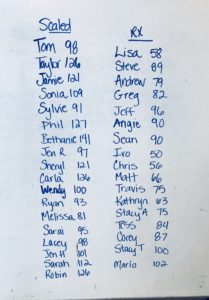 Scaled
Tom 98
Taylor 126
Jamie 121
Sonia 109
Sylvie 91
Phil 127
Bethanie 141
Jen R. 97
Sheryl 121
Carla 126
Wendy 100
Ryan 93
Melissa 81
Sarai 95
Lacey 98
Jen H 101
Sarah 112
Robin 126
RX
Lisa 58
Steve 89
Andrew 79
Greg 82
Jeff 96
Angie 90
Sean 90
Ivo 50
Chris 56
Matt 66
Travis 75
Kathryn 63
Stacy A 75
84
Corey 87
Stacy T 100
Mario 102